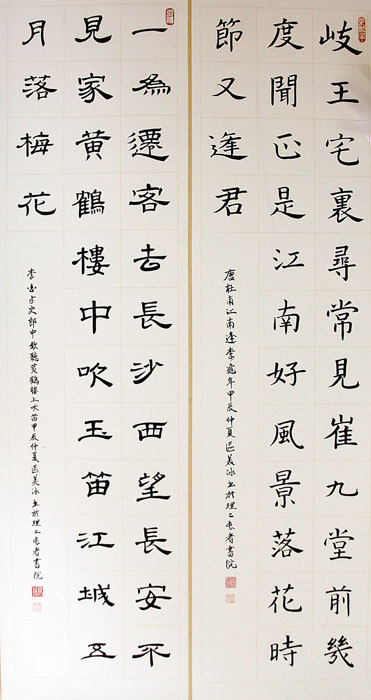 岐王宅裏尋常見崔九堂前幾
度聞正是江南好風景落花時
節又逢君
唐杜甫江南逢李龜年甲辰仲夏區美冰書於理工長者書院
一為遷客去長沙西望長安不
見家黃鶴樓中吹玉笛江城五
月落梅花
李白與史郎中欽聽黃鶴樓上吹笛甲辰仲夏區美冰書於理工長者書院